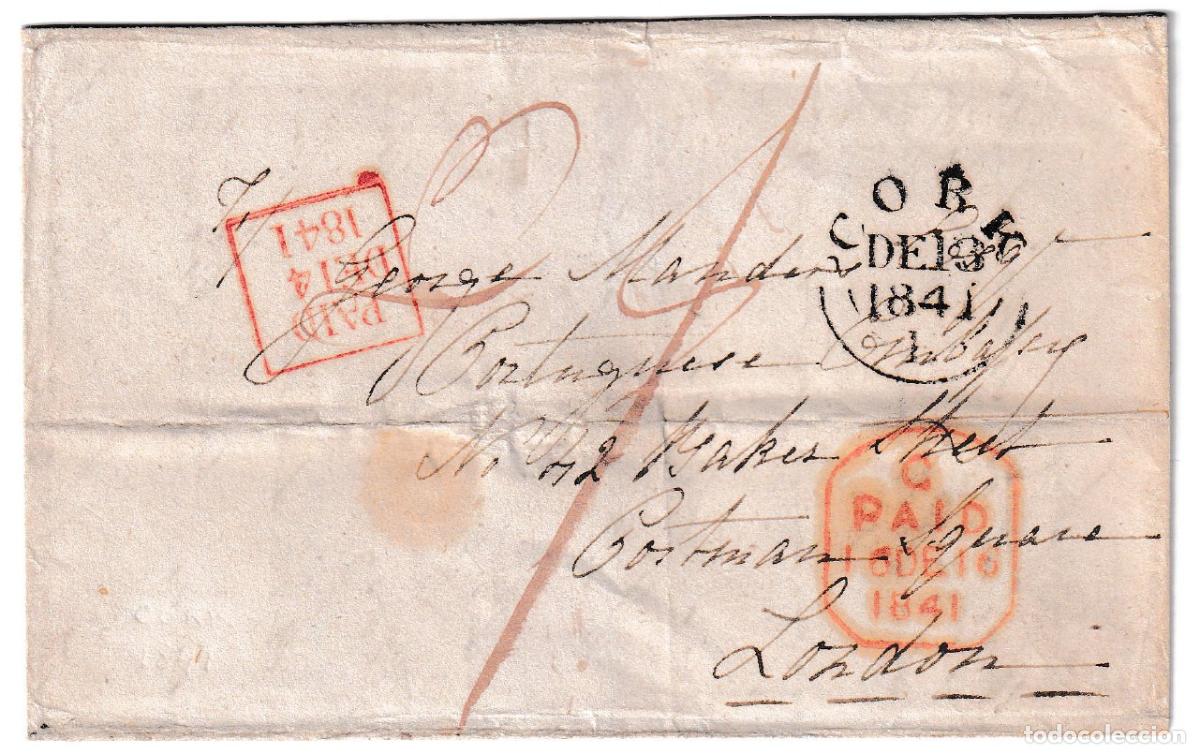 CORK
DE 13
1841
1
PAID
DE 14
1841
George Manders Esqr
Portuguese Embassy
No 42 Baker Street
Portman Square
London
C
PAID
16 DE 16
1841
todocoleccion